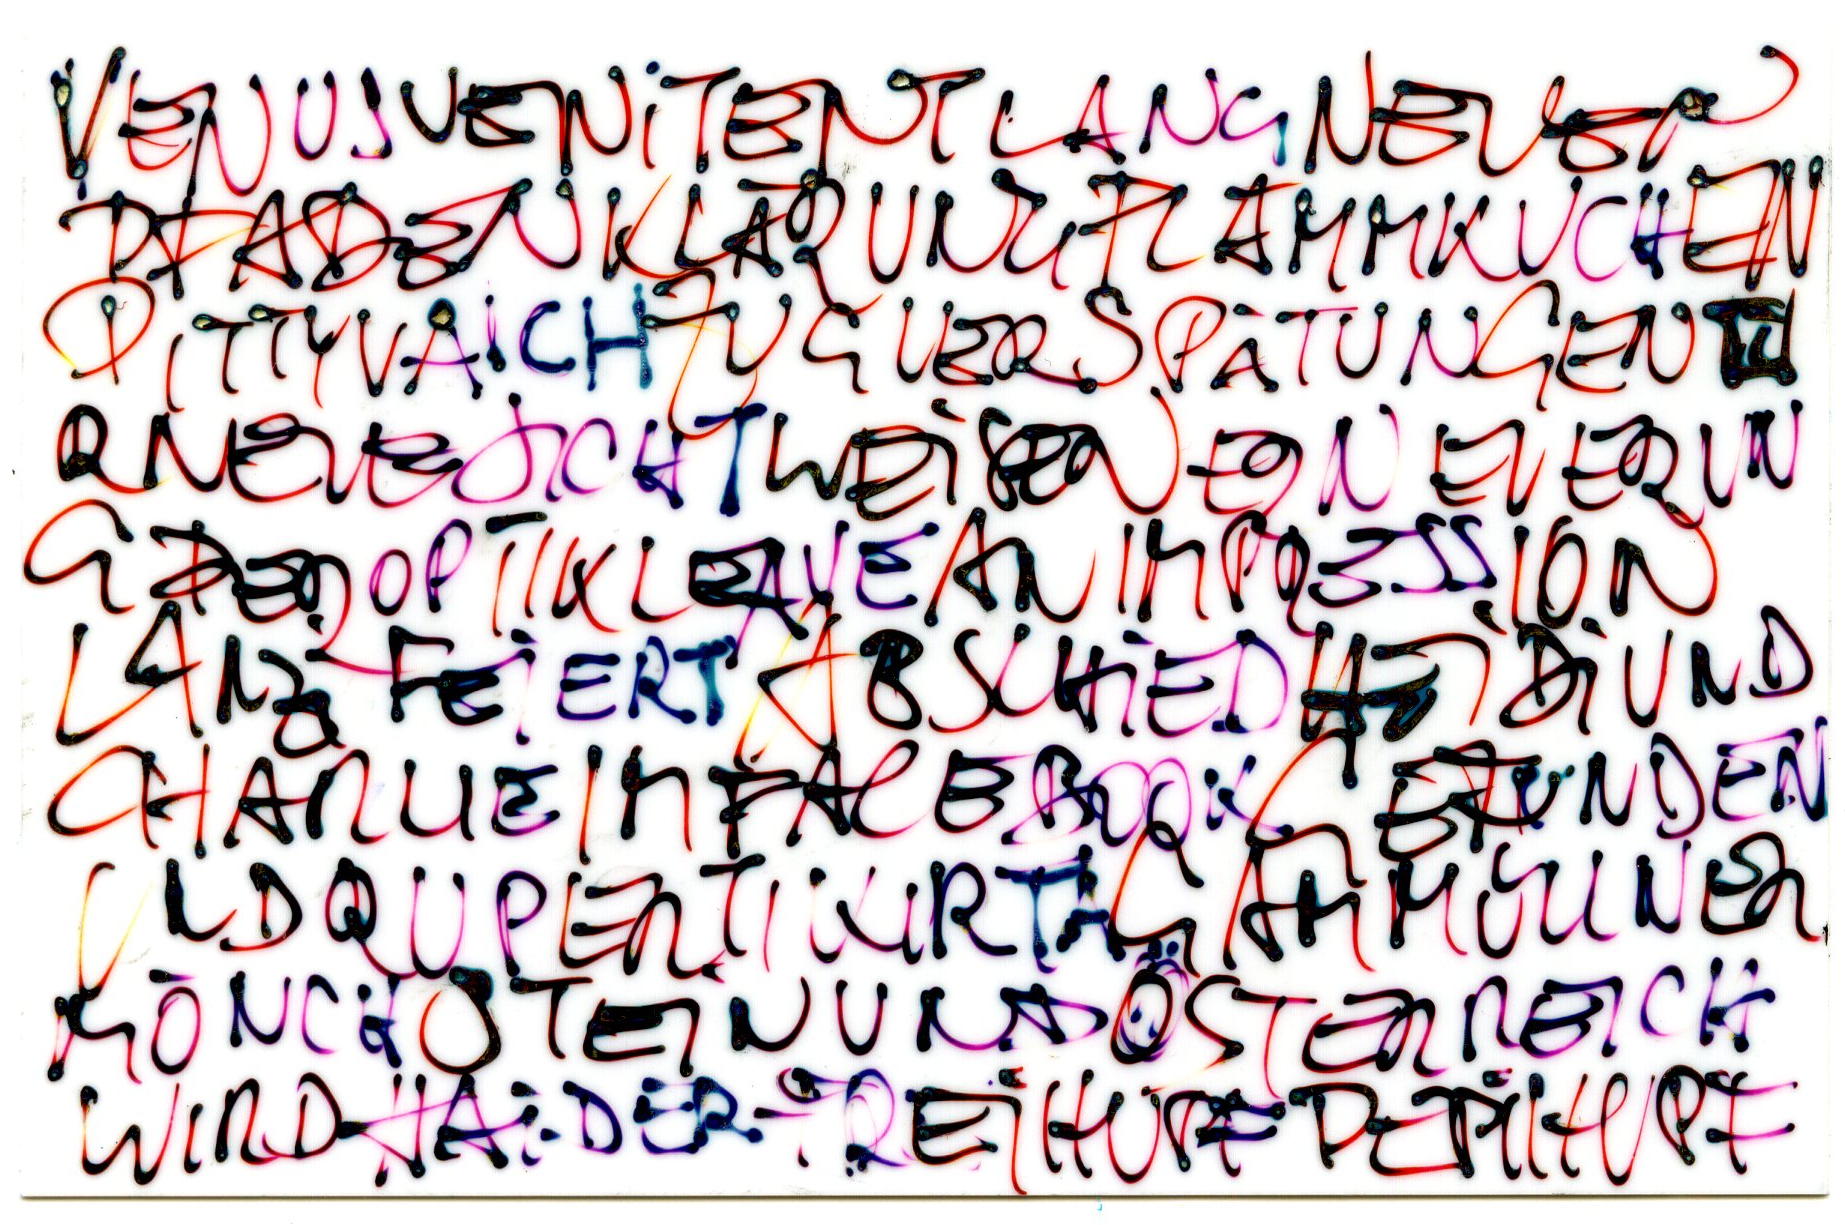 VENUSVENiTENTLANGNEUER
PFADENKLÄRUNGFLAMMKUCHEN
PITTYVAiCHZUGVERSPÄTUNGENFÜ
RNEUESICHTWEiSENERNEUERUN
GDEROPTIKLEAVEANIMPRESSION
LANZFEiERTABSCHiEDHEiDiUND
CHARLIEIMFACEBOOKGEFUNDEN
RUPERTIKIRTAGAHMÜLLNER
MÖNCHOSTERNUNDÖSTERREICH
WIRDHAiDER-FREiHUPFDEPIHUPF